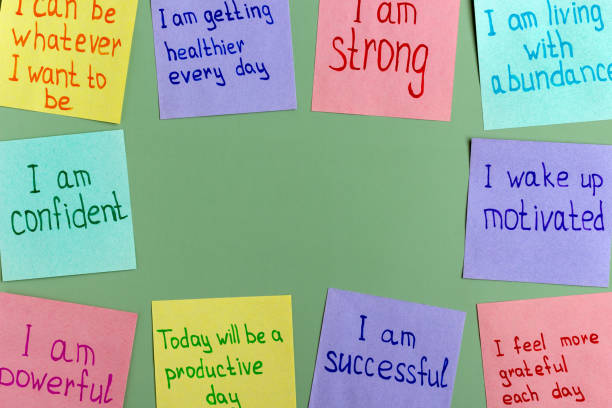 I can be
whatever
I want to
be
I am getting
healthier
every day
I am
strong
I am living
with
abundance
I am
confident
I wake up
motivated
I am
powerful
Today will be a
productive
day
I am
successful
I feel more
grateful
each day